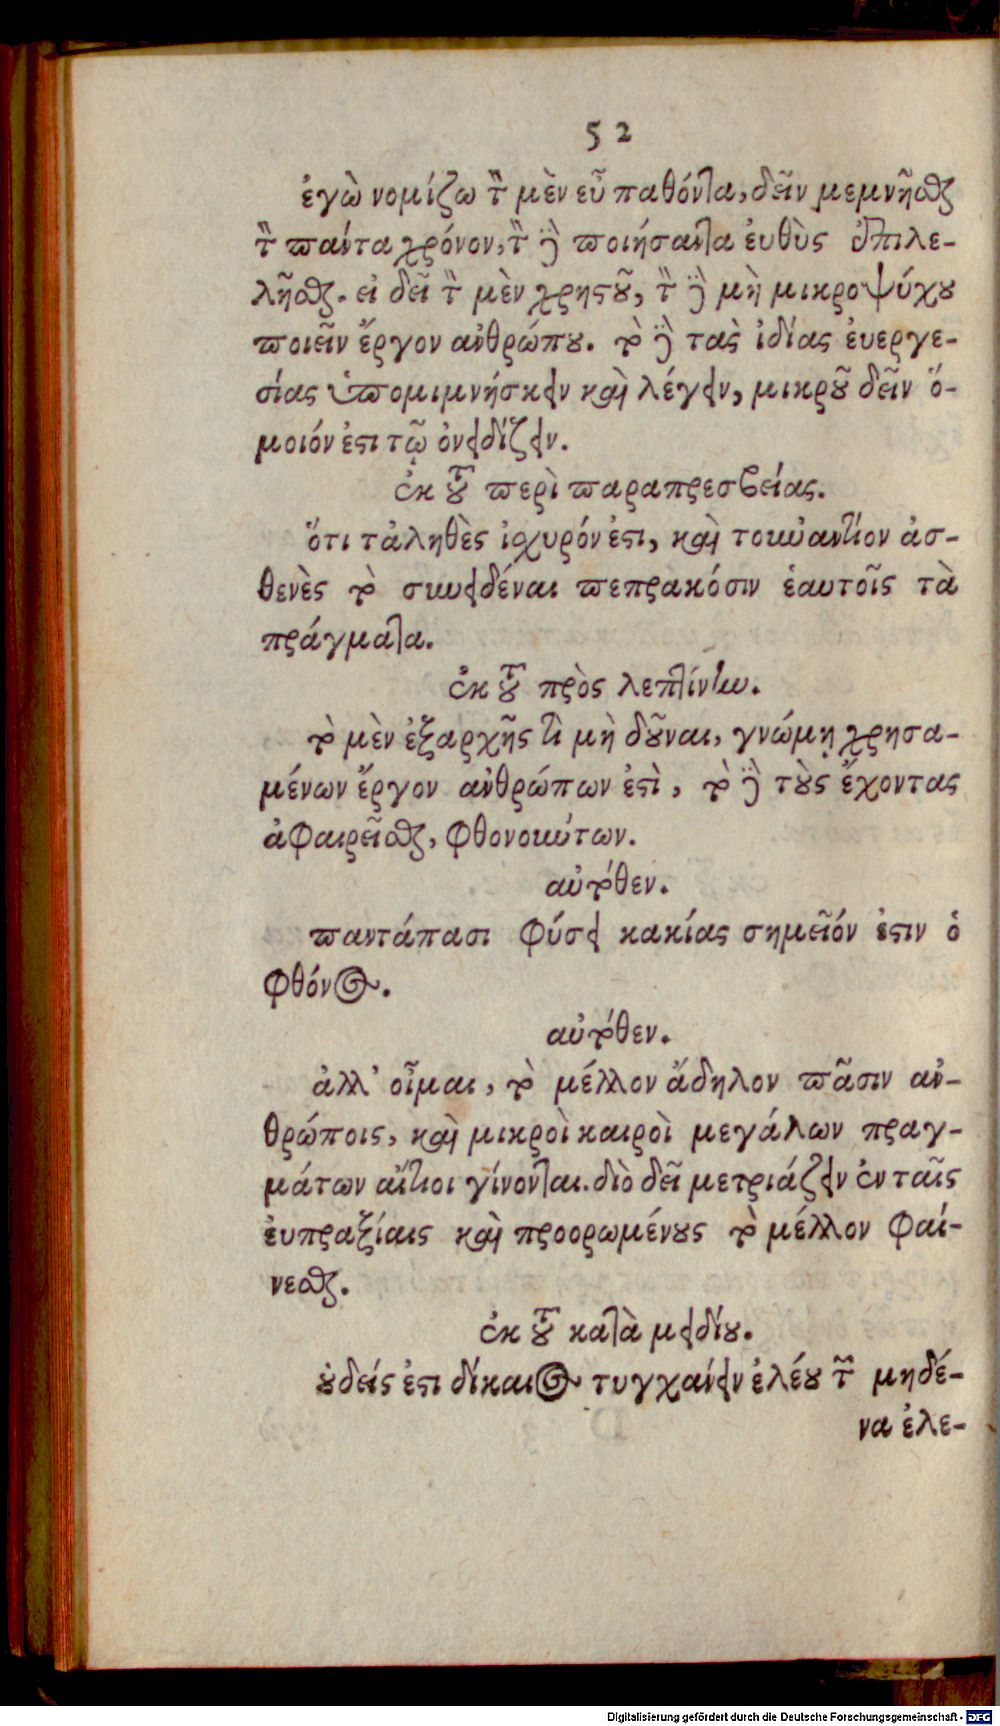 52
ἐγὼ νομίζω τὸν μὲν εὖ παθόντα, δεῖν μεμνῆσθαι
τὸν πάντα χρόνον, τὸν δὲ ποιήσαντα ἐυθὺς ἐπιλε-
λῆσθαι. εἰ δεῖ τὸν μὲν χρηστοῦ, τὸν δὲ μὴ μικροψύχου
ποιεῖν ἔργον ἀνθρώπου. τὸ δὲ τὰς ἰδίας ἐυεργε-
σίας ὑπομιμνήσκειν καὶ λέγειν, μικροῦ δεῖν ὅ-
μοιόν ἐστι τῷ ὀνειδίζειν.
ἐκ τοῦ περὶ παραπρεσβείας.
ὅτι τἀληθὲς ἰσχυρόν ἐστι, καὶ τοὐναντίον ἀσ-
θενὲς τὸ συνειδέναι πεπρακόσιν ἑαυτοῖς τὰ
πράγματα.
ἐκ τοῦ πρὸς λεπτίνην.
τὸ μὲν ἐξαρχῆς τὶ μὴ δοῦναι, γνώμῃ χρησα-
μένων ἔργον ἀνθρώπων ἐστὶ, τὸ δὲ τοὺς ἔχοντας
ἀφαιρεῖσθαι, φθονούντων.
αὐτόθεν.
παντάπασι φύσει κακίας σημεῖόν ἐστιν ὁ
φθόνος.
αὐτόθεν.
ἀλλ' οἶμαι, τὸ μέλλον ἄδηλον πᾶσιν ἀν-
θρώποις, καὶ μικροὶ καιροὶ μεγάλων πραγ-
μάτων αἴτιοι γίνονται. διὸ δεῖ μετριάζειν ἐν ταῖς
ἐυπραξίαις καὶ προορωμένους τὸ μέλλον φαί-
νεσθαι.
ἐκ τοῦ κατὰ μειδίου.
οὐδείς ἐστι δίκαιος τυγχάνειν ἐλέου τῶν μηδέ-
να ἐλε-
Digitalisierung gefördert durch die Deutsche Forschungsgemeinschaft - DFG